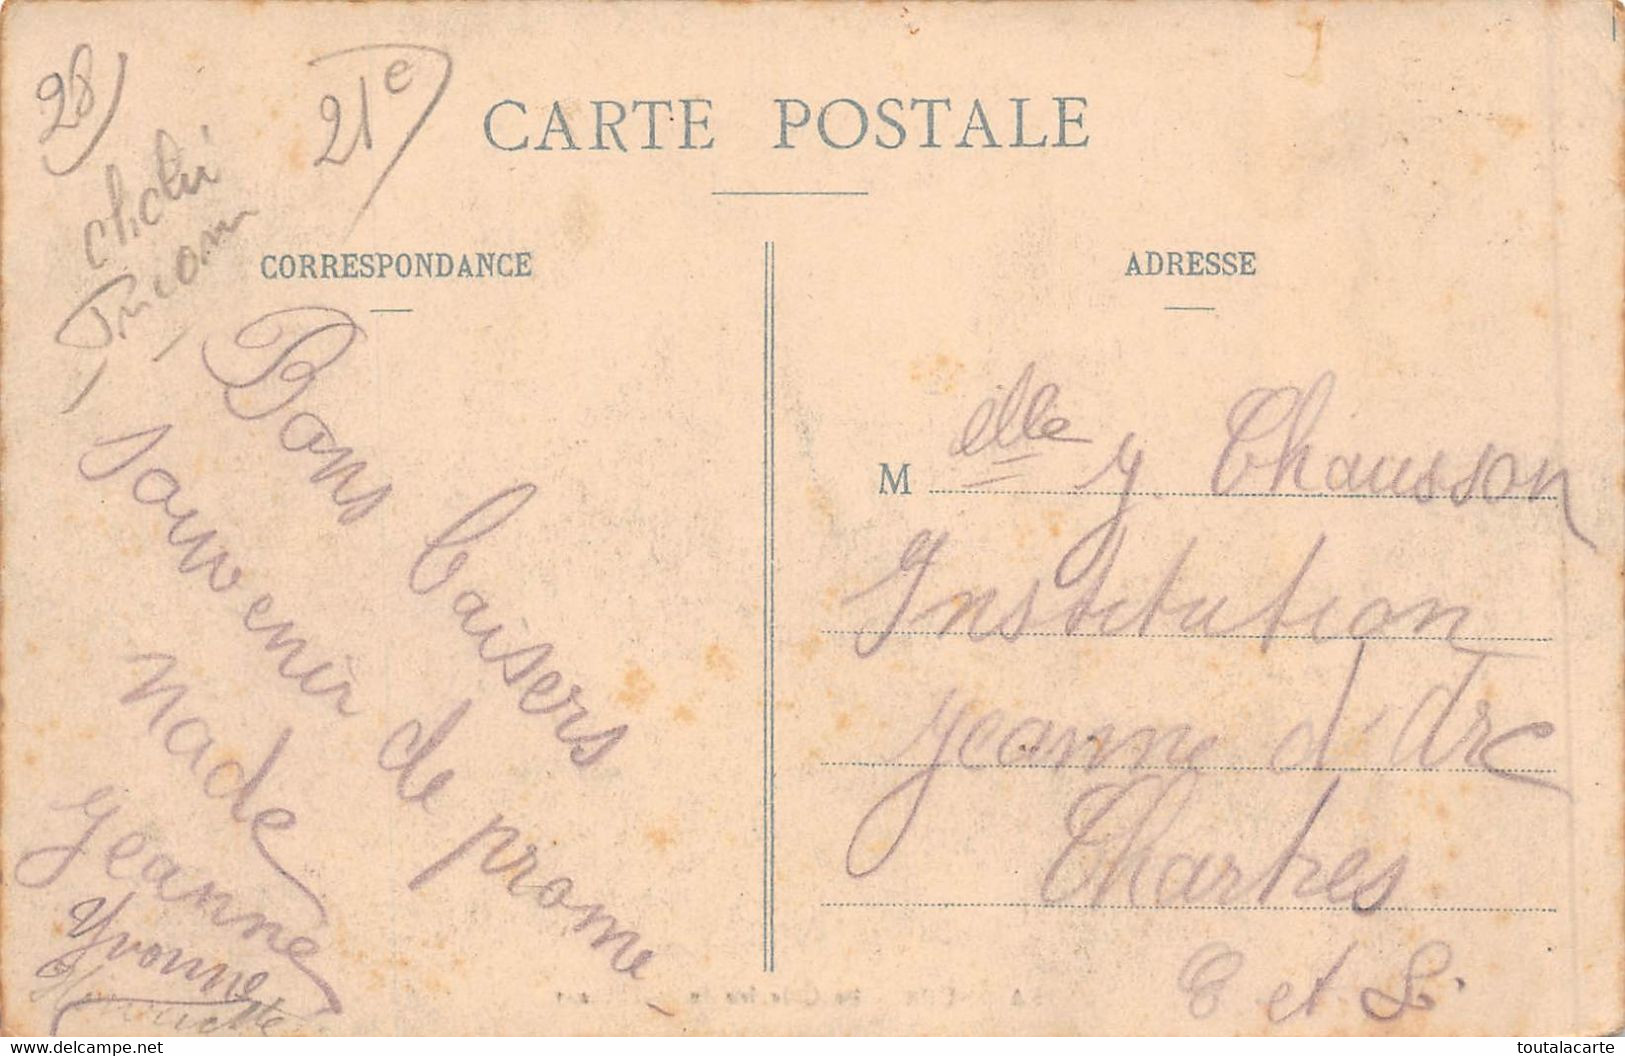 28)
21e
CARTE POSTALE
CORRESPONDANCE
ADRESSE
Bons baisers
souvenir de prome-
nade
Jeanne
Yvonne
M elle Y. Chausson
Institution
Jeanne d'Arc
Chartres
E et L.
toutalacarte